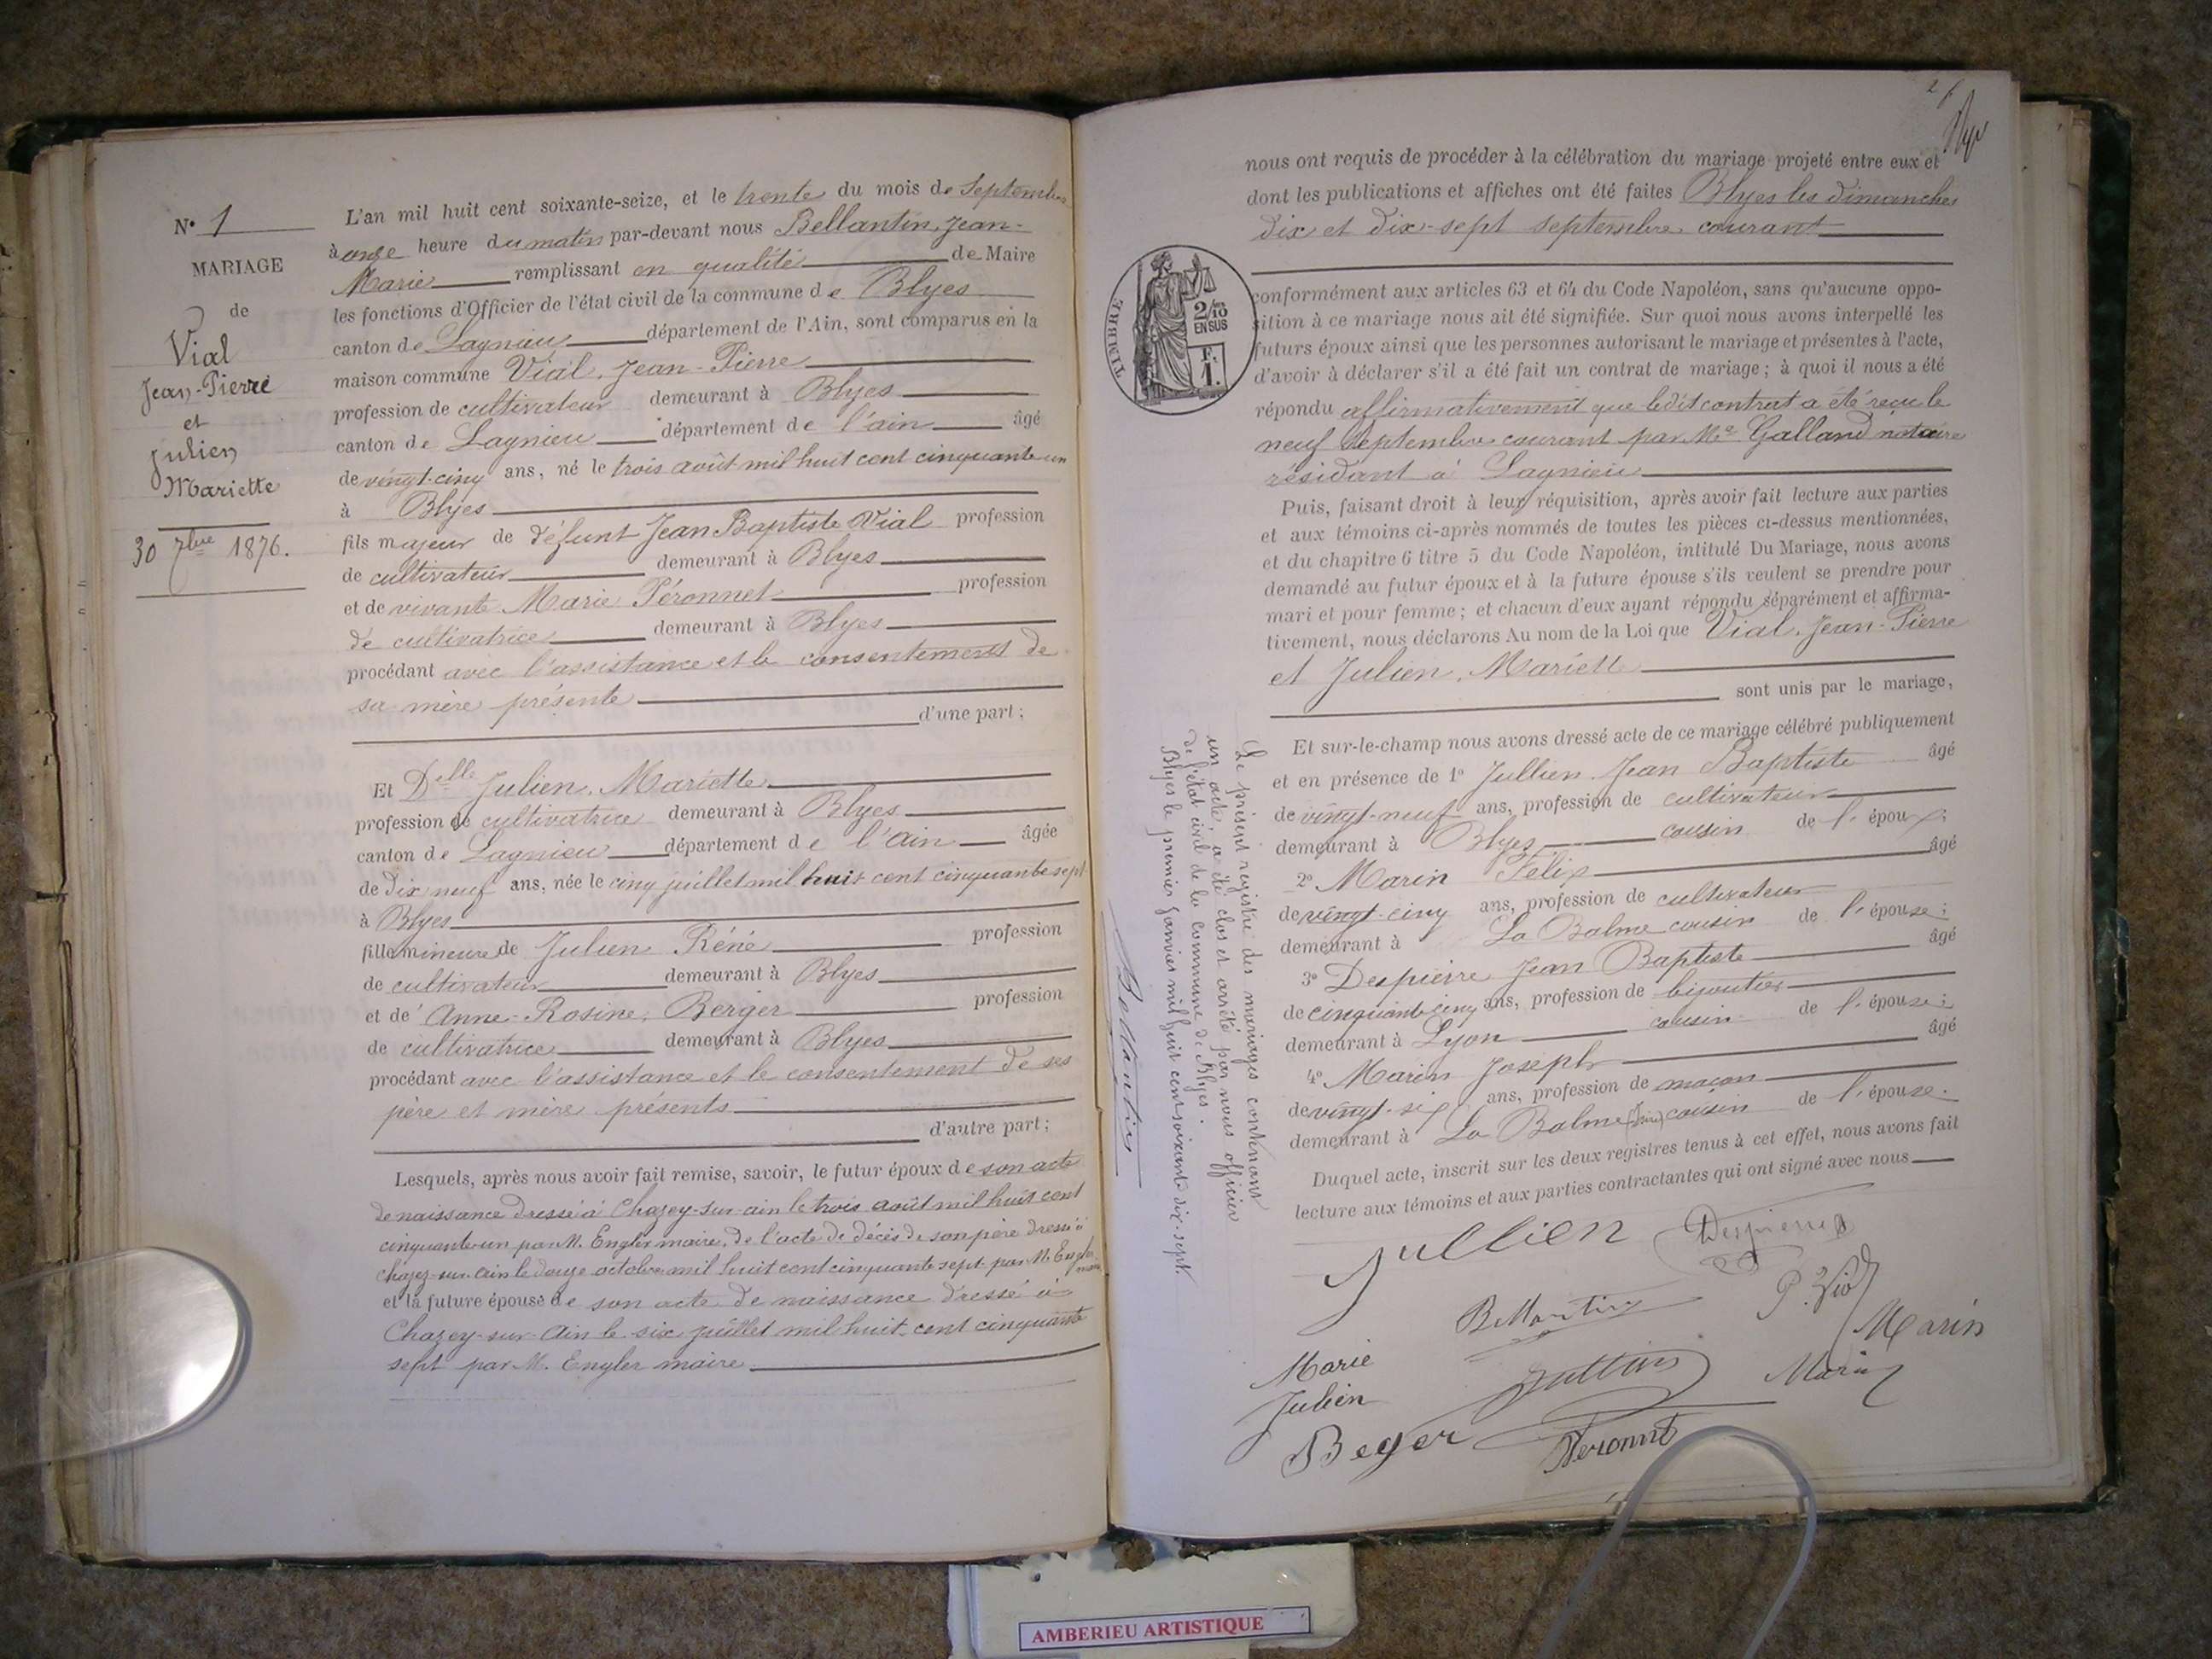 N° 1
MARIAGE
de
Vial
Jean-Pierre
et
Julien
Mariette
30 7bre 1876.
L'an mil huit cent soixante-seize, et le trente du mois de Septembre
à onze heure du matin par-devant nous Bellantin, Jean-
Marie remplissant en qualité de Maire
les fonctions d'Officier de l'état civil de la commune de Blyes
canton de Lagnieu département de l'Ain, sont comparus en la
maison commune Vial, Jean-Pierre
profession de cultivateur demeurant à Blyes
canton de Lagnieu département de l'ain âgé
de vingt-cinq ans, né le trois août mil huit cent cinquante un
à Blyes
fils majeur de défunt Jean Baptiste Vial profession
de cultivateur demeurant à Blyes
et de vivante Marie Péronnet profession
de cultivatrice demeurant à Blyes
procédant avec l'assistance et le consentement de
sa mère présente
d'une part;
Et Delle Julien, Mariette
profession de cultivatrice demeurant à Blyes
canton de Lagnieu département de l'Ain âgée
de dix neuf ans, née le cinq juillet mil huit cent cinquante sept
à Blyes
fille mineure de Julien Réné profession
de cultivateur demeurant à Blyes
et de Anne-Rosine, Berger profession
de cultivatrice demeurant à Blyes
procédant avec l'assistance et le consentement de ses
père et mère présents
d'autre part;
Lesquels, après nous avoir fait remise, savoir, le futur époux de son acte
de naissance dressé à Chazey-sur-ain le trois août mil huit cent
cinquante-un par M. Engler maire, de l'acte de décès de son père dressé à
Chazey-sur-Ain le douze octobre mil huit cent cinquante sept par M. Engler maire
et la future épouse de son acte de naissance dressé à
Chazey-sur-Ain le six juillet mil huit cent cinquante
sept par M. Engler maire
nous ont requis de procéder à la célébration du mariage projeté entre eux et
dont les publications et affiches ont été faites Blyes les dimanches
dix et dix-sept septembre courant
TIMBRE
2/10
EN SUS
F.
1.
conformément aux articles 63 et 64 du Code Napoléon, sans qu'aucune oppo-
sition à ce mariage nous ait été signifiée. Sur quoi nous avons interpellé les
futurs époux ainsi que les personnes autorisant le mariage et présentes à l'acte,
d'avoir à déclarer s'il a été fait un contrat de mariage; à quoi il nous a été
répondu affirmativement que ledit contrat a été reçu le
neuf Septembre courant par Me Galland notaire
résidant à Lagnieu
Puis, faisant droit à leur réquisition, après avoir fait lecture aux parties
et aux témoins ci-après nommés de toutes les pièces ci-dessus mentionnées,
et du chapitre 6 titre 5 du Code Napoléon, intitulé Du Mariage, nous avons
demandé au futur époux et à la future épouse s'ils veulent se prendre pour
mari et pour femme; et chacun d'eux ayant répondu séparément et affirma-
tivement, nous déclarons Au nom de la Loi que Vial, Jean-Pierre
et Julien, Mariette
sont unis par le mariage,
Et sur-le-champ nous avons dressé acte de ce mariage célébré publiquement
et en présence de 1° Jullien Jean Baptiste âgé
de vingt-neuf ans, profession de cultivateur
demeurant à Blyes cousin de l'époux;
2° Marin Félix âgé
de vingt-cinq ans, profession de cultivateur
demeurant à La Balme cousin de l'épouse;
3° Despierre Jean Baptiste âgé
de cinquante cinq ans, profession de bijoutier
demeurant à Lyon cousin de l'épouse;
4° Marin Joseph âgé
de vingt-six ans, profession de maçon
demeurant à La Balme cousin de l'épouse.
Duquel acte, inscrit sur les deux registres tenus à cet effet, nous avons fait
lecture aux témoins et aux parties contractantes qui ont signé avec nous
Jullien
Despierre
Bellantin
P. Vial
Marin
Marie
Julien
Jullien
Marin
Beger
Peronnet
Le présent registre des mariages contenant
un acte, a été clos et arrêté par nous officier
de l'état civil de la commune de Blyes.
Blyes le premier Janvier mil huit cent soixante dix-sept.
Bellantin
AMBERIEU ARTISTIQUE